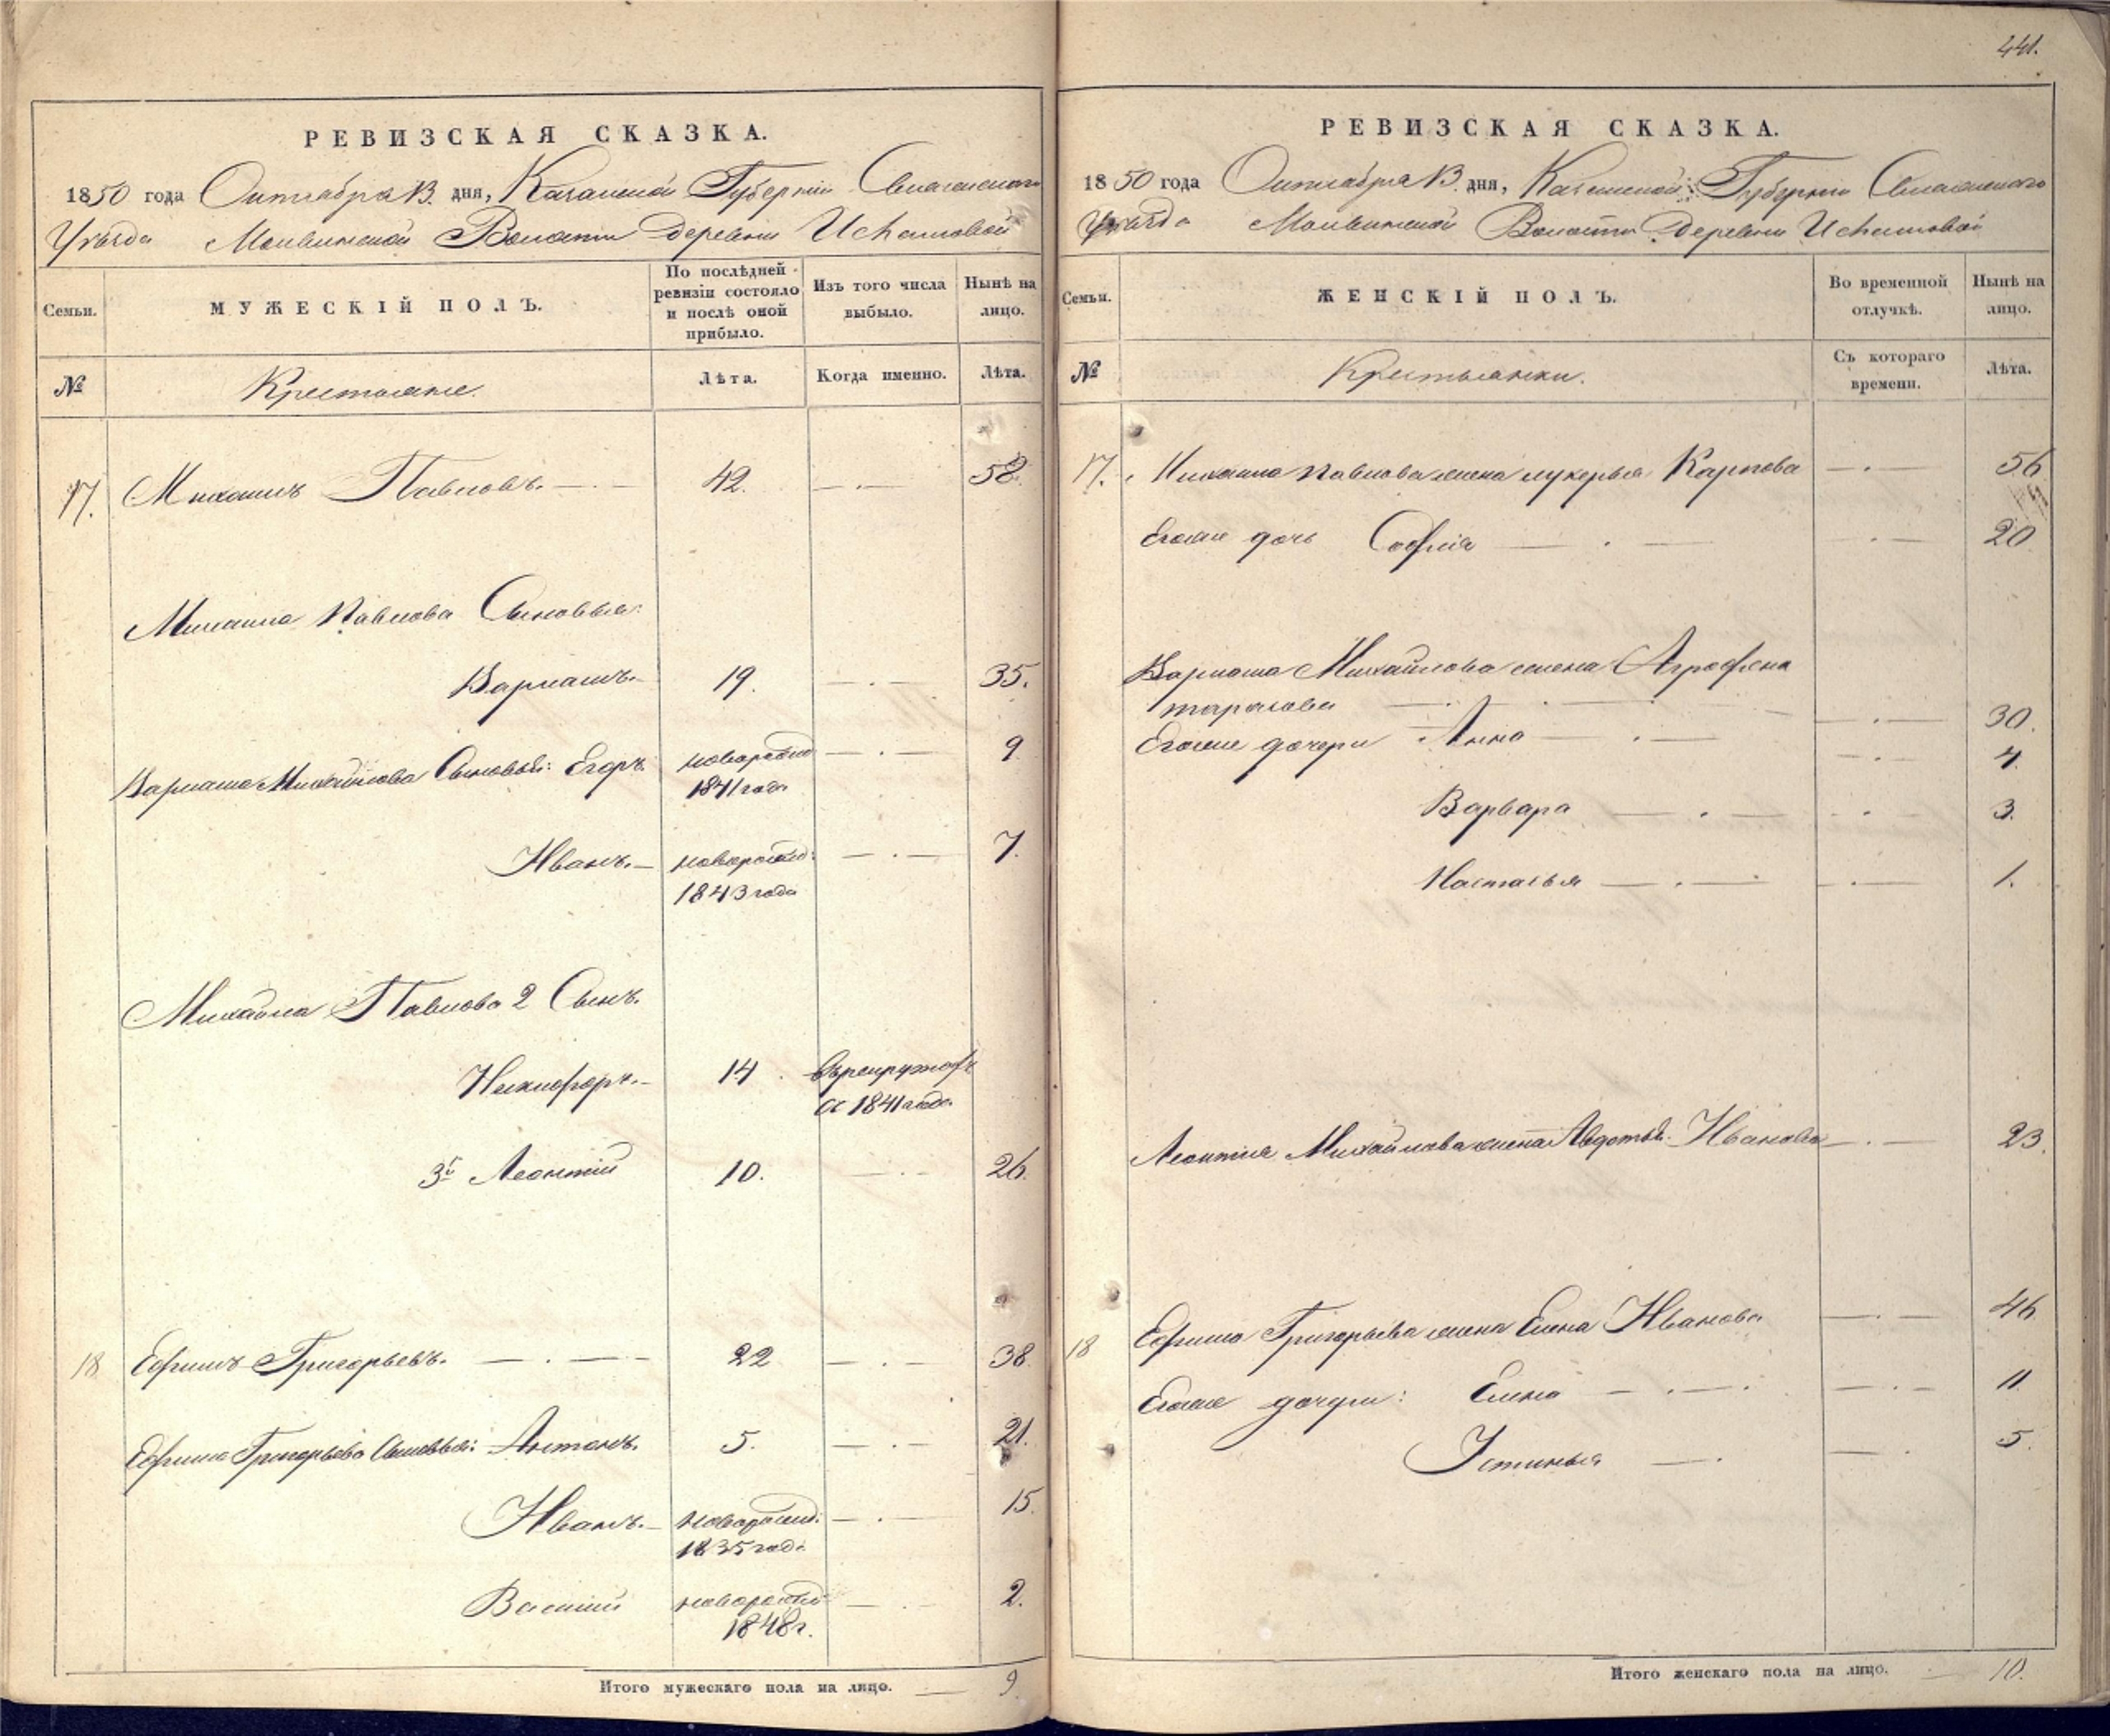 РЕВИЗСКАЯ СКАЗКА.
1850 года Октября 13 дня, Казанской Губернии Свіяжскаго
Уѣзда Волости деревни
Семьи.
МУЖЕСКІЙ ПОЛЪ.
По послѣдней ревизіи состояло и послѣ оной прибыло.
Изъ того числа выбыло.
Нынѣ на лицо.
№
Крестьяне.
Лѣта.
Когда именно.
Лѣта.
17. Михаилъ Павловъ. 42. 58.
Михаила Павлова Сыновья:
19. 35.
Михайлова Сыновья: Егоръ. новорожд 9
1841 года
Иванъ. новорожд: 7.
1843 года
Михайла Павлова 2 Сынъ.
14 въ рекрутах
съ 1841 года
3й Леонтий 10. 26.
18 Ефимъ Григорьевъ. 22 38
Ефима Григорьева Сыновья: Антонъ. 5. 21.
Иванъ. новорожд: 15.
1835 года
Василий новорожд 2.
1848 г.
Итого мужескаго пола на лицо. 9.
441.
РЕВИЗСКАЯ СКАЗКА.
1850 года Октября 13 дня, Казанской Губернии Свіяжскаго
Уѣзда Волости деревни
Семьи.
ЖЕНСКІЙ ПОЛЪ.
Во временной отлучкѣ.
Нынѣ на лицо.
№
Крестьянки.
Съ котораго времени.
Лѣта.
17. Михаила Павлова жена лукерья Карпова 56
Егоже дочь София 20
Михайлова жена Аграфена
тарасова 30.
Егоже дочери Анна 4
Варвара 3.
Настасья 1.
Леонтия Михайлова жена Авдотья Иванова 23.
18 Ефима Григорьева жена Елена Иванова 46
Егоже дочери: Елена 11
Устинья 5.
Итого женскаго пола на лицо. 10.